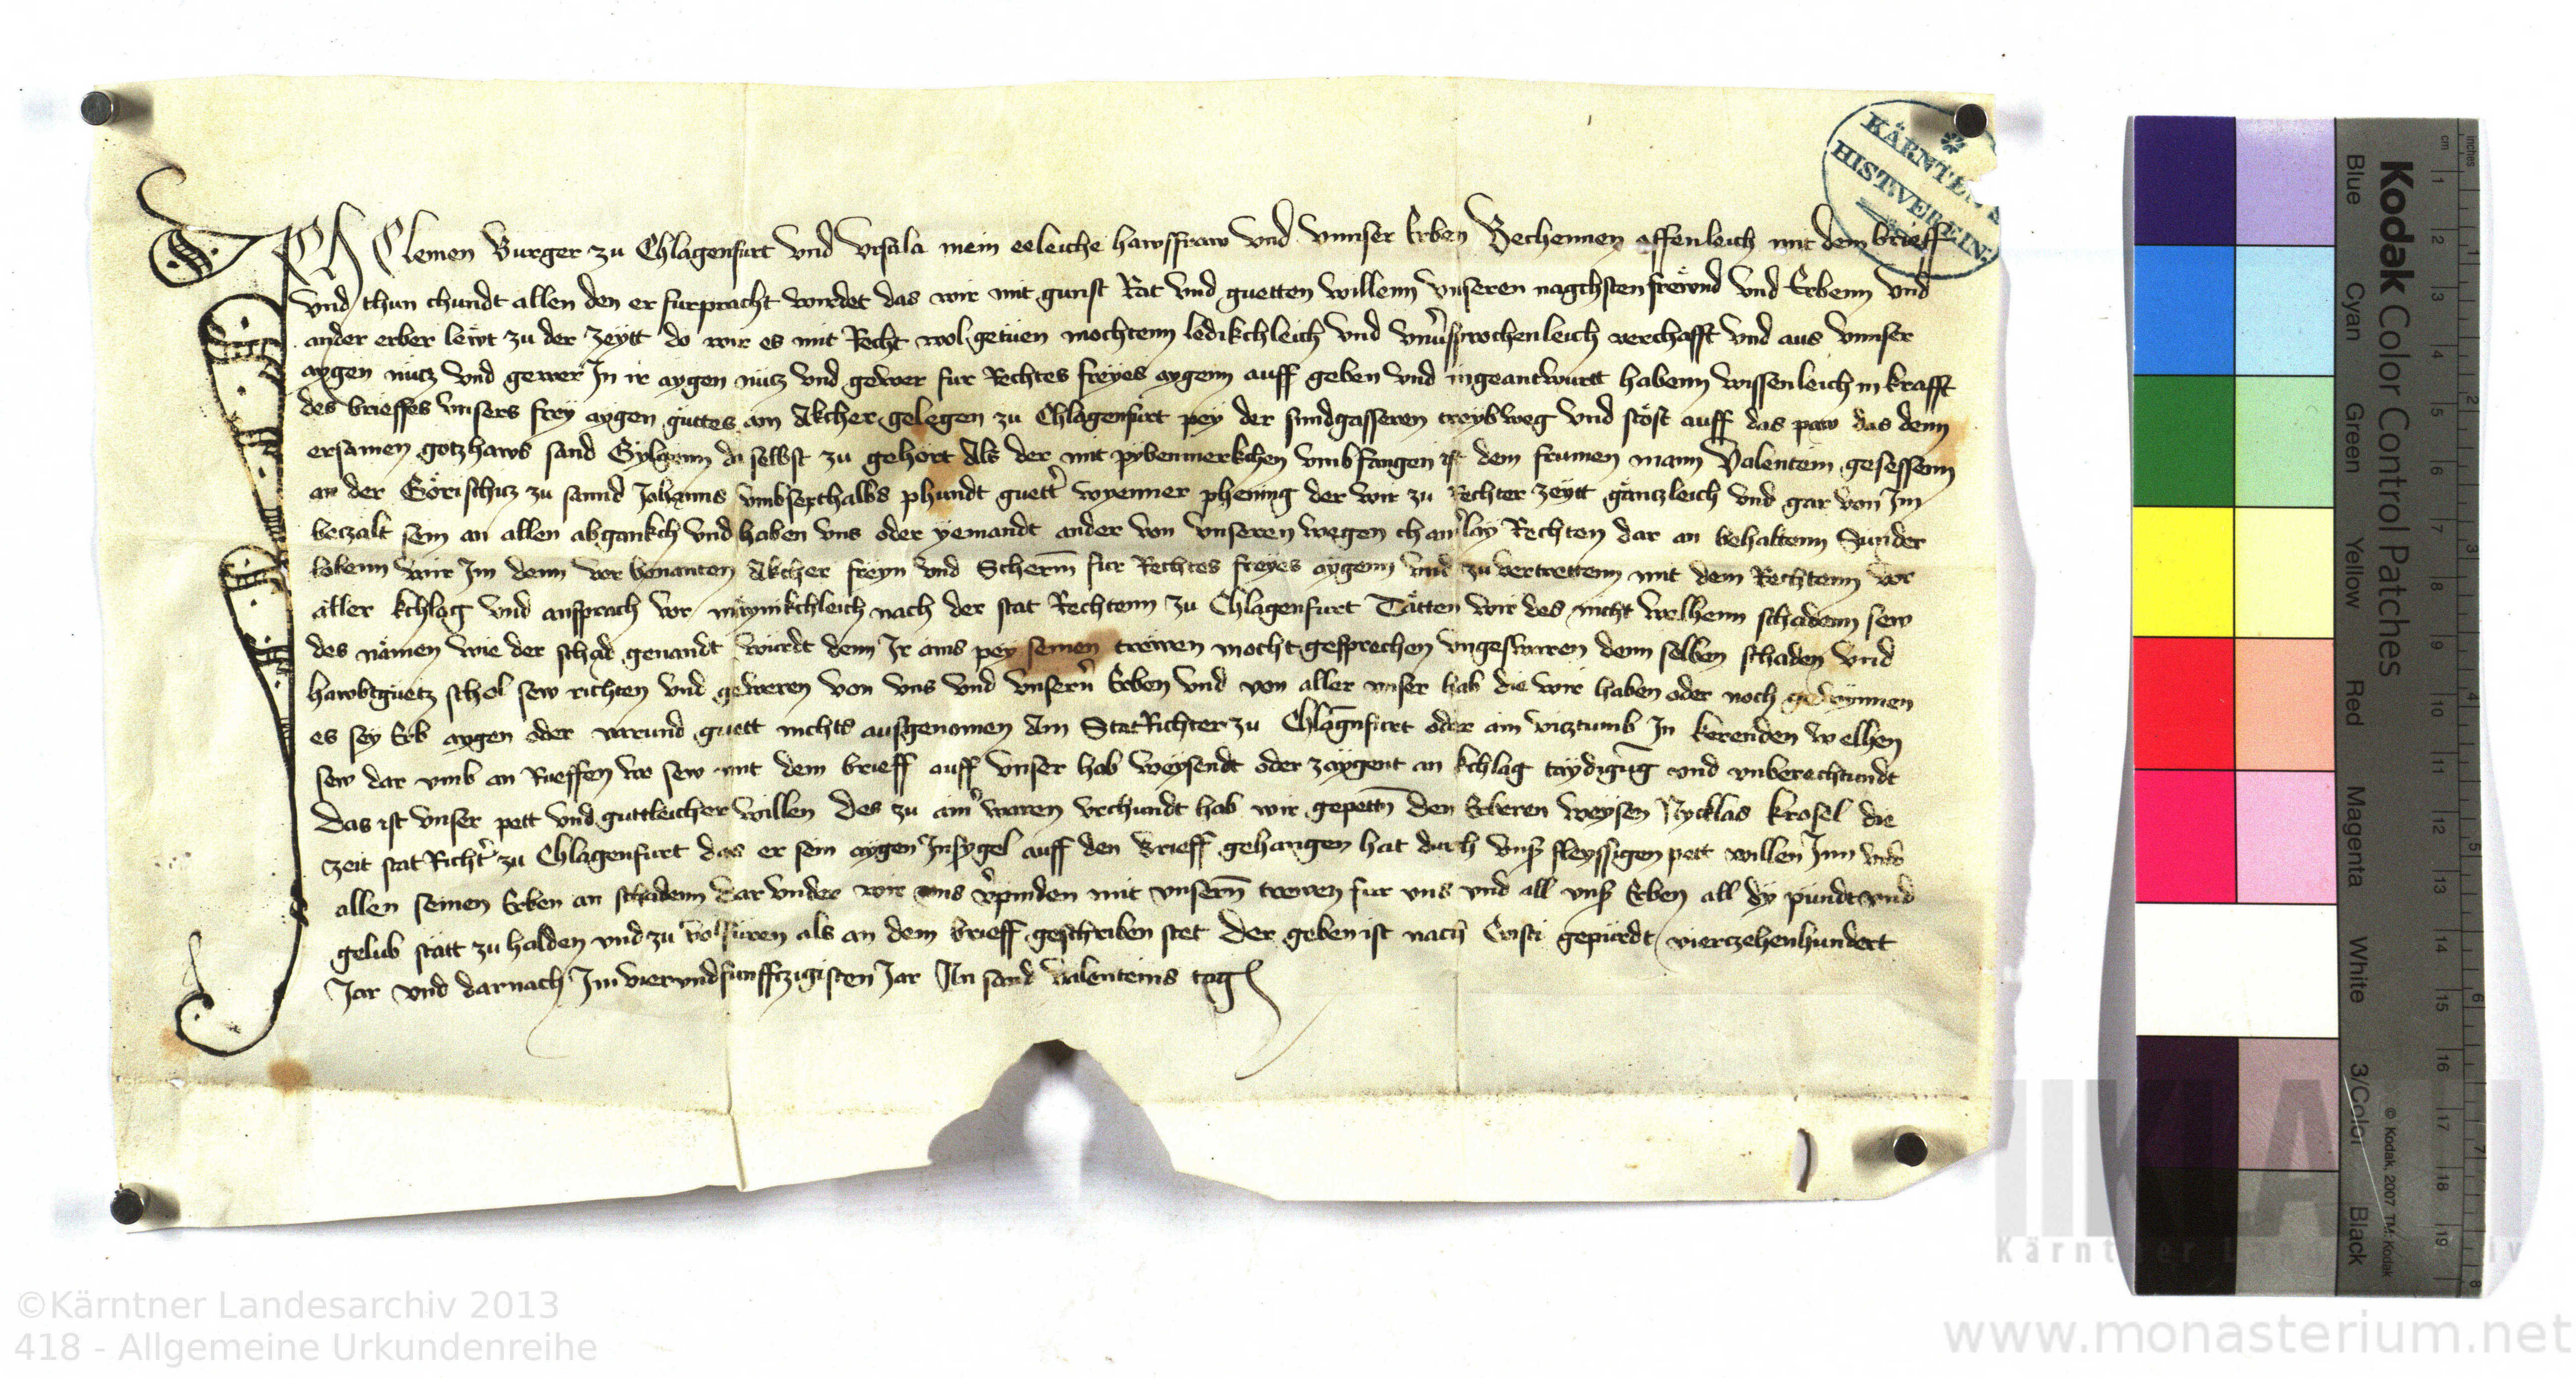 KÄRNTEN
HIST. VEREIN.
ICH Clemen Burger zu Chlagenfurt vnd Vrsula mein eeleiche hawsfraw vnd vnnser Erben Bechennen offenleich mit dem brieff
vnd thun chundt allen den er furpracht wirdet das wir mit gunst Rat vnd guetten willenn vnseren nagchsten frewnd vnd Erbenn vnd
ander erber lewt zu der zeytt do wir es mit Recht wol getuen mochtenn ledikchleich vnd vnuersprochenleich verchafft vnd aus vnnser
aygen nucz vnd gewer In ir aygen nucz vnd gewer fur Rechtes freyes aygenn auff geben vnd ingeantwurtt habenn wissenleich in krafft
des brieffes vnsers frey aygen guttes ain Akcher gelegen zu Chlagenfurt pey der sundgasseren treybweg vnd stöst auff das paw das denn
ersamen gotzhaws sand Gylgenn da selbst zu gehört Als der mit pybenmerkchen vmbfangen ist dem frumen mann Valentein gesessenn
an der Görtschicz zu sannd Johanns vmb sexthalbs phundt guett wyenner phening der wir zu Rechter zeytt gänczleich vnd gar von Im
beczalt sein an allen abgankch vnd haben vns oder yemandt ander von vnseren wegen chainlay Rechten dar an behaltenn Sunder
lobenn wir Im denn vor benanten Akcher freyn vnd Scherm fur Rechtes freyes aygenn vnd zu vertrettenn mit dem Rechtenn vor
aller kchlag vnd ansprach vor mäynikchleich nach der stat Rechtenn zu Chlagenfurt Tätten wir des nicht welhenn schadenn sew
des nämen wie der schad genandt wurdt denn Ir ains pey seinen trewen mocht gesprechen vngeswaren denn selben schaden vnd
hawbtguetz schol sew richten vnd geweren von vns vnd vnsern Erben vnd von aller vnser hab die wir haben oder noch gewynnen
es sey Erb aygen oder varund guett nichts ausgenomen Am StatRichter zu Chlagnfurt oder ain viztumb In kerenden welhen
sew dar vmb an Rueffen wo sew mit dem brieff auff vnser hab weysendt oder zaygent an kchlag taydigung vnd vnberechtundt
das ist vnser pett vnd guttleicher willen des zu aim waren vrchundt hab wir gepettn den Erberen weysen Nycklas krosel die
czeit stat Richter zu Chlagenfurt das er sein aygen Insygel auff den brieff gehangen hat durch vnser fleyssigen pett willen Im vnd
allen seinen Erben an schadenn dar vnder wir vns verpinden mit vnsern trewen fur vns vnd all vnser Erben all dy pundt vnd
gelub stätt zu halden vnd zu volfüren als an dem brieff geschriben stet Der geben ist nach Cristi gepurdt vierczehenhundert
Jar vnd darnach Im viervndfunffczigisten Jar An sand valenteins tag
Kodak Color Control Patches
Blue Cyan Green Yellow Red Magenta White 3/Color Black
© Kodak, 2007 TM: Kodak
inches 1 2 3 4 5 6 7 8
cm 1 2 3 4 5 6 7 8 9 10 11 12 13 14 15 16 17 18 19
©Kärntner Landesarchiv 2013
418 - Allgemeine Urkundenreihe
www.monasterium.net